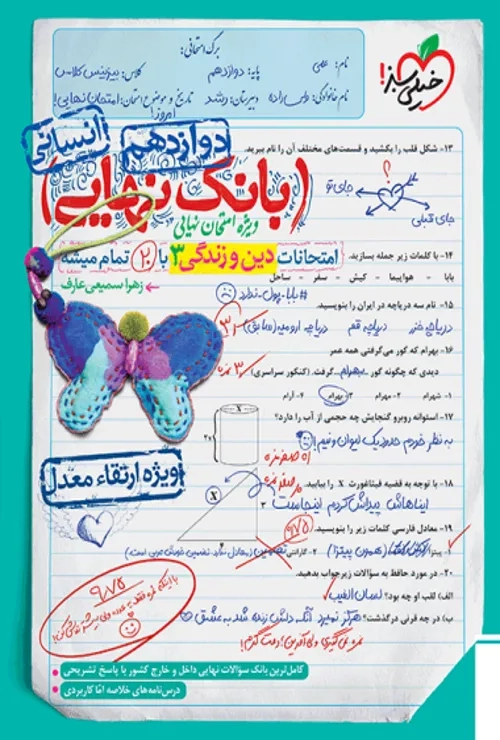 برگ امتحانی:
نام:
پایه: دوازدهم
کلاس: بیزینس کلاس
نام خانوادگی:
دبیرستان: رشد
تاریخ و موضوع امتحان: امتحان نهایی!
امروز
خیلی سبز!
انسانی
دوازدهم
(بانک نهایی)
ویژه امتحان نهایی
امتحانات دین و زندگی ۳ با ۲۰ تمام میشه
زهرا سمیعی عارف
۱۳- شکل قلب را بکشید و قسمت‌های مختلف آن را نام ببرید.
؟
جای تو
جای قبلی
۱۴- با کلمات زیر جمله بسازید.
بابا - هواپیما - کیش - سفر - ساحل
# بابا_پول_ندارد
۱۵- نام سه دریاچه در ایران را بنویسید.
دریاچه خزر دریاچه قم دریاچه ارومیه (سابق)
۱۶- بهرام که گور می‌گرفتی همه عمر
دیدی که چگونه گور بهرام گرفت. (کنکور سراسری)
۱- شهرام ۲- مهرام ۳- بهرام ۴- آرام
۱۷- استوانه روبرو گنجایش چه حجمی از آب را دارد؟
x
۲x
به نظر خودم حدود یک لیوان و نیم!
۱۸- با توجه به قضیه فیثاغورث X را بیابید.
ایناهاش پیداش کردم اینجاست
X
۳
۴
۱۹- معادل فارسی کلمات زیر را بنویسید.
۱- پیتزا (همون پیتزا) ۲- گارانتی
۲۰- در مورد حافظ به سؤالات زیر جواب بدهید.
الف) لقب او چه بود؟ لسان الغیب
ب) در چه قرنی درگذشت؟ هرگز نمیرد آنکه دلش زنده شد به عشق
۹٫۷۵
ویژه ارتقاء معدل
کامل‌ترین بانک سؤالات نهایی داخل و خارج کشور با پاسخ تشریحی
درس‌نامه‌های خلاصه امّا کاربردی